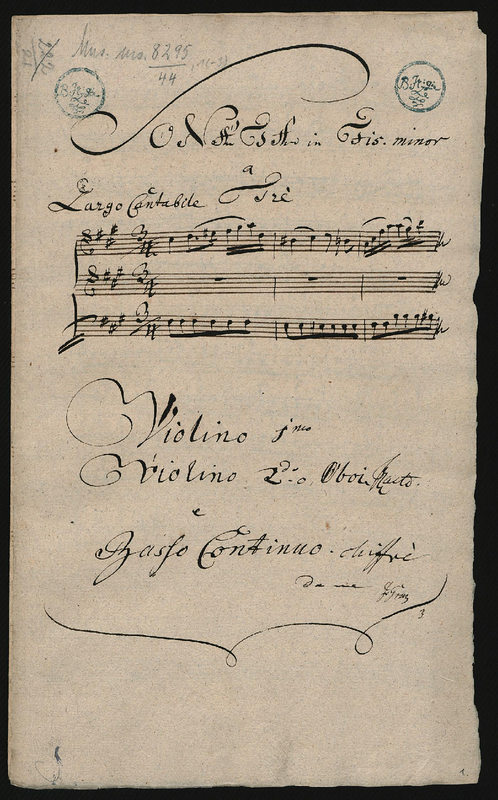 Mus. ms. 8295
44
SONATA in Fis. minor
a
Trè
Largo Cantabile
3/4
3/4
3/4
Violino 1mo
Violino 2do o Oboi
e
Basso Continuo. chiffrè
3
1.